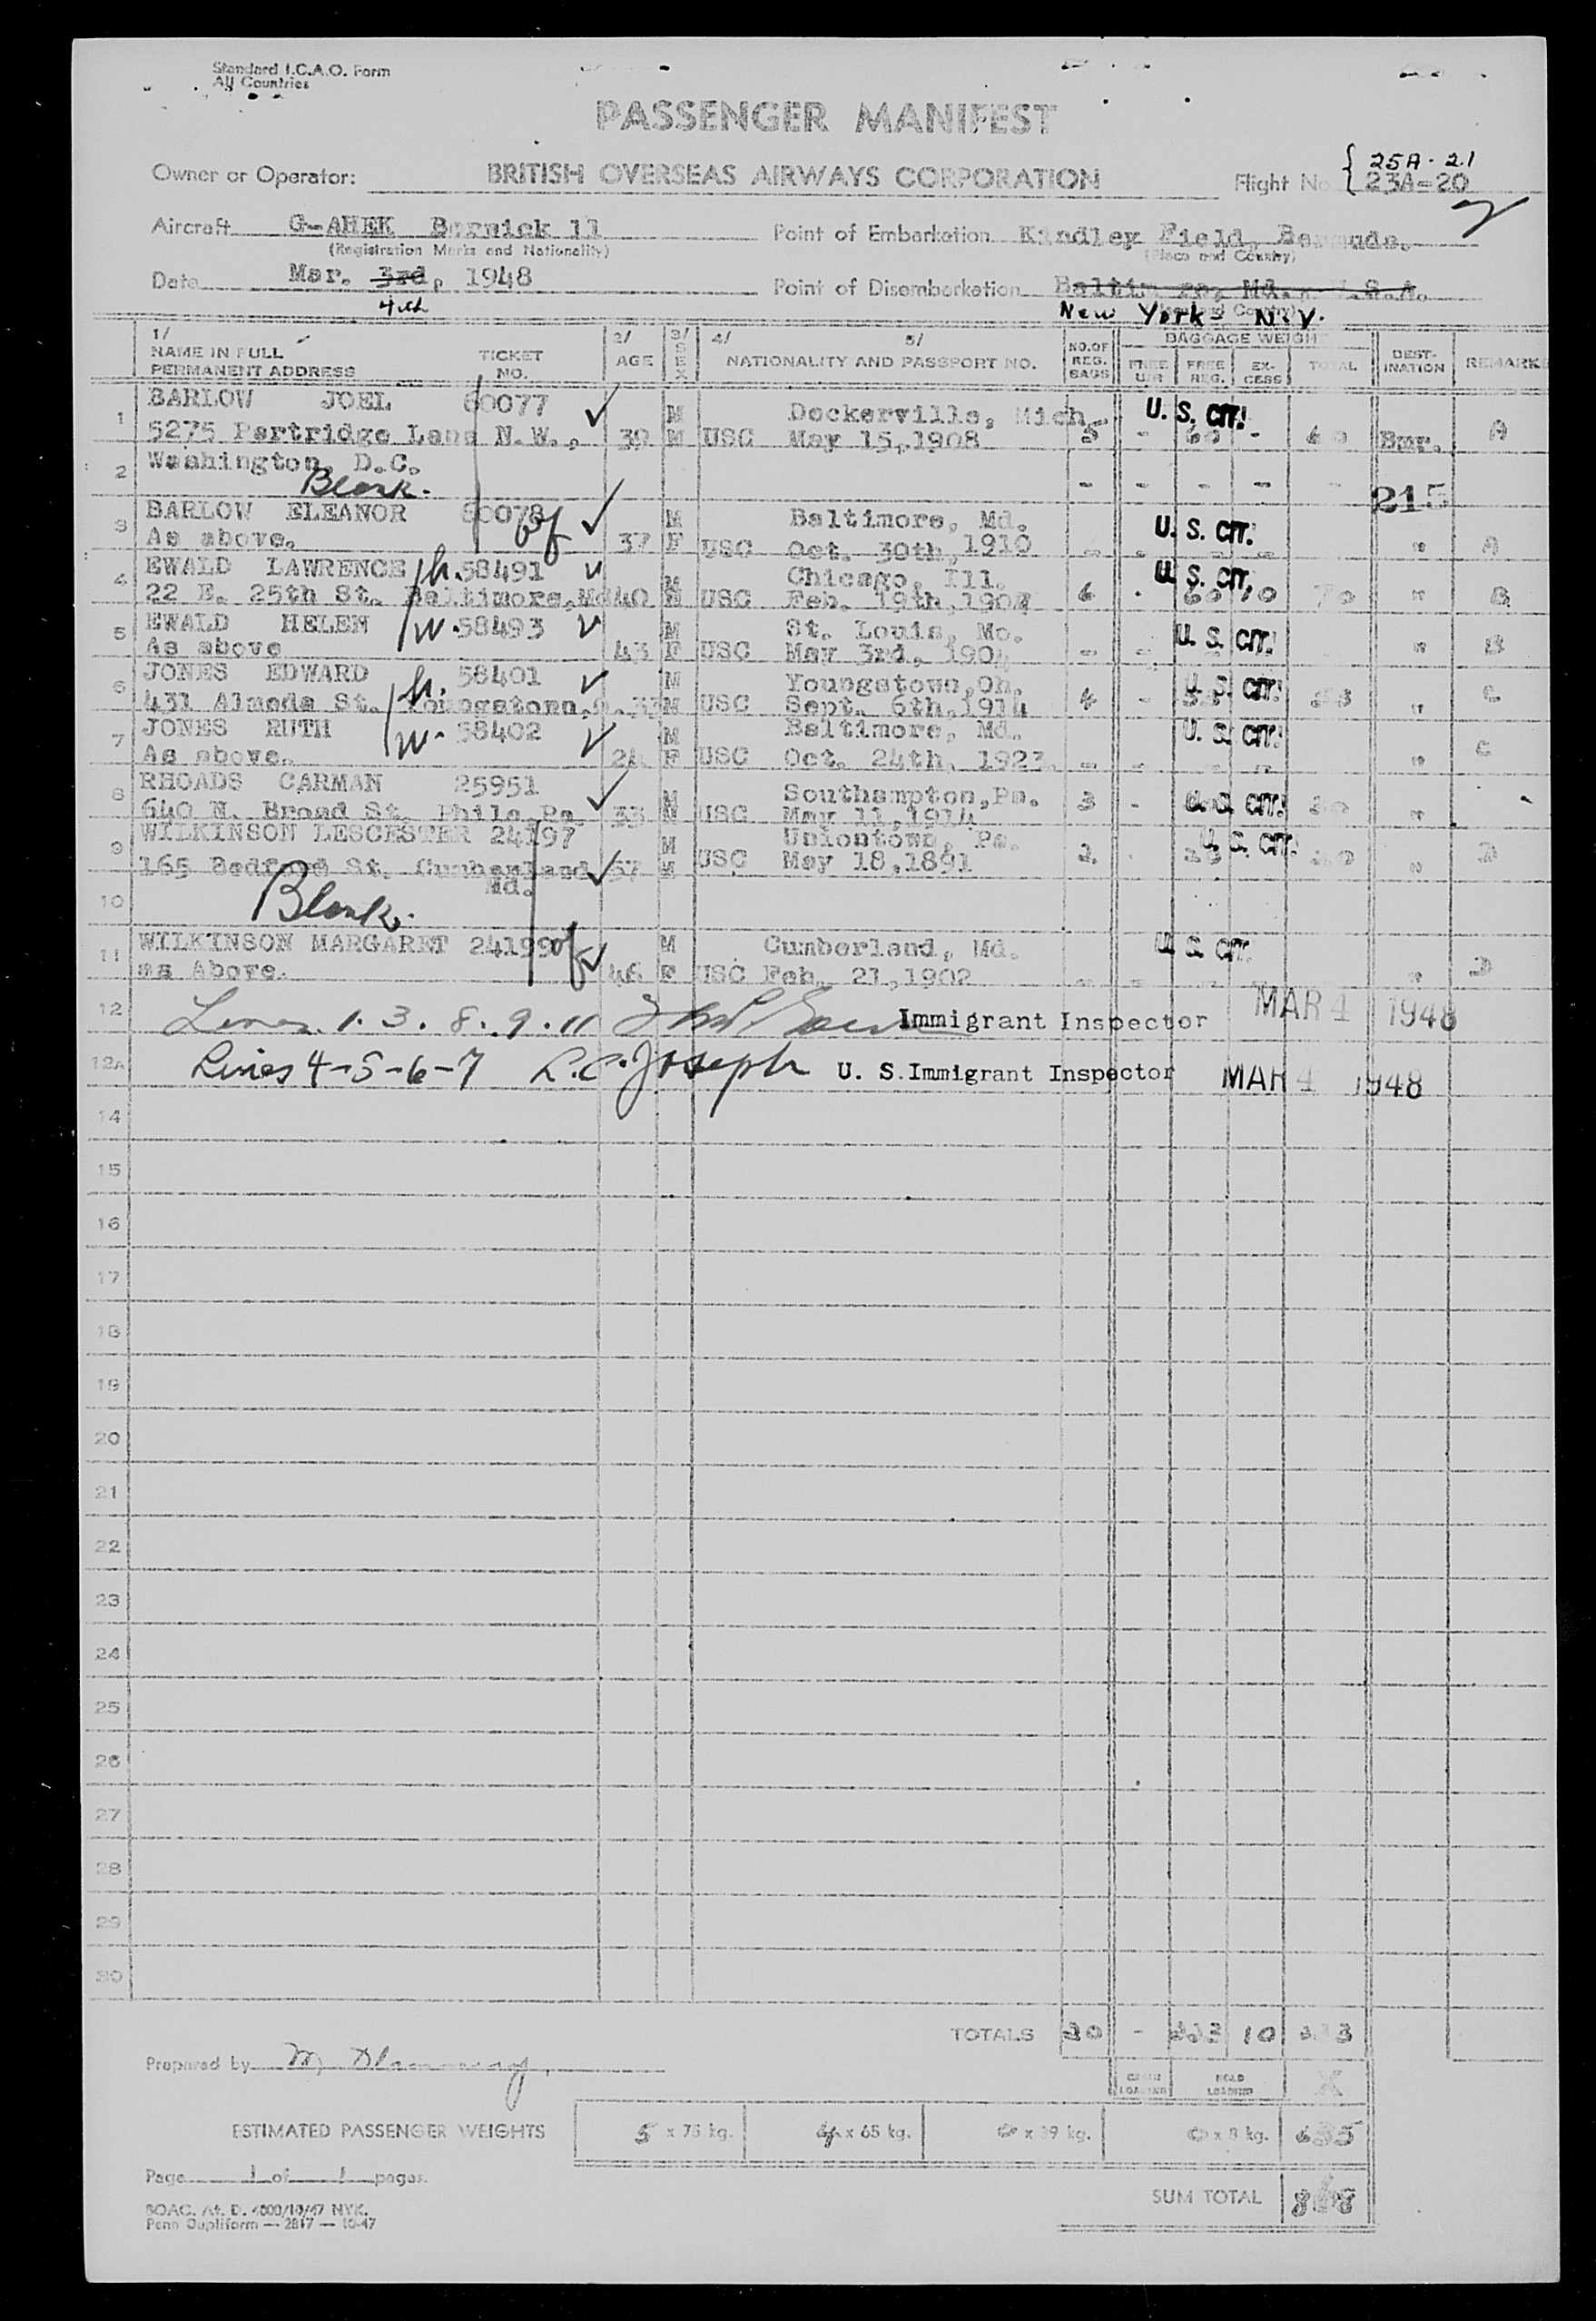 Standard I.C.A.O. Form
All Countries
PASSENGER MANIFEST
Owner or Operator: BRITISH OVERSEAS AIRWAYS CORPORATION
Flight No. 25A-21
23A-20
Aircraft G-AHEK Berwick 11
(Registration Marks and Nationality)
Point of Embarkation Kindley Field, Bermuda.
(Place and Country)
Date Mar. 3rd, 1948
4th
Point of Disembarkation Baltimore, Md., U.S.A.
New York N.Y.
1/ NAME IN FULL PERMANENT ADDRESS TICKET NO. 2/ AGE 3/ SEX 4/ NATIONALITY AND PASSPORT NO. 5/ NO. OF REG. BAGS BAGGAGE WEIGHT FREE REG. EX-CESS TOTAL DEST-INATION REMARKS
1 BARLOW JOEL 60077 M Deckerville, Mich. U. S. CIT.
5275 Partridge Lane N.W., 39 M USC May 15,1908 5 - 60 - 60 Bmr. A
2 Washington, D.C.
Blank. - - - - - 215
3 BARLOW ELEANOR 60078 wf M Baltimore, Md. U. S. CIT.
As above. 37 F USC Oct. 30th, 1910 - - - - " A
4 EWALD LAWRENCE h. 58491 M Chicago, Ill. U. S. CIT.
22 E. 25th St. Baltimore, Md 40 M USC Feb. 19th, 6 - 60 10 70 " B
5 EWALD HELEN w. 58493 M St. Louis, Mo. U. S. CIT.
As above 43 F USC May 3rd, 1904 - - " B
6 JONES EDWARD h. 58401 M Youngstown,Oh. U. S. CIT.
431 Almeda St. Youngstown, 33 M USC Sept. 6th,1914 4 - " C
7 JONES RUTH w. 58402 M Baltimore, Md. U. S. CIT.
As above. 24 F USC Oct. 24th, 1923. - - - - " C
8 RHOADS CARMAN 25951 M Southampton,Pa. U. S. CIT.
640 N. Broad St. Phila.Pa. 33 M USC May 11,1914 3 - 30 "
9 WILKINSON LESCESTER 24197 M Uniontown, Pa. U. S. CIT.
165 Bedford St. Cumberland 57 M USC May 18,1891 2 - "  D
Md.
10 Blank.
11 WILKINSON MARGARET 24199 wf M Cumberland, Md. U. S. CIT.
as Above. 46 F USC Feb. 21,1902 - - " D
12 Lines. 1. 3. 8. 9. 11 Immigrant Inspector MAR 4 1948
12A Lines 4-5-6-7 L.C. Joseph U. S. Immigrant Inspector MAR 4 1948
14
15
16
17
18
19
20
21
22
23
24
25
26
27
28
29
30
TOTALS 20 - 10
Prepared by M.
CABIN LOADING HOLD LOADING X
ESTIMATED PASSENGER WEIGHTS 5 x 75 kg. 4 x 65 kg. 0 x 39 kg. 0 x 8 kg. 635
Page 1 of 1 pages.
SUM TOTAL 868
BOAC. At. D. 4000/10/47 NYK.
Penn Dupliform — 2817 — 10-47